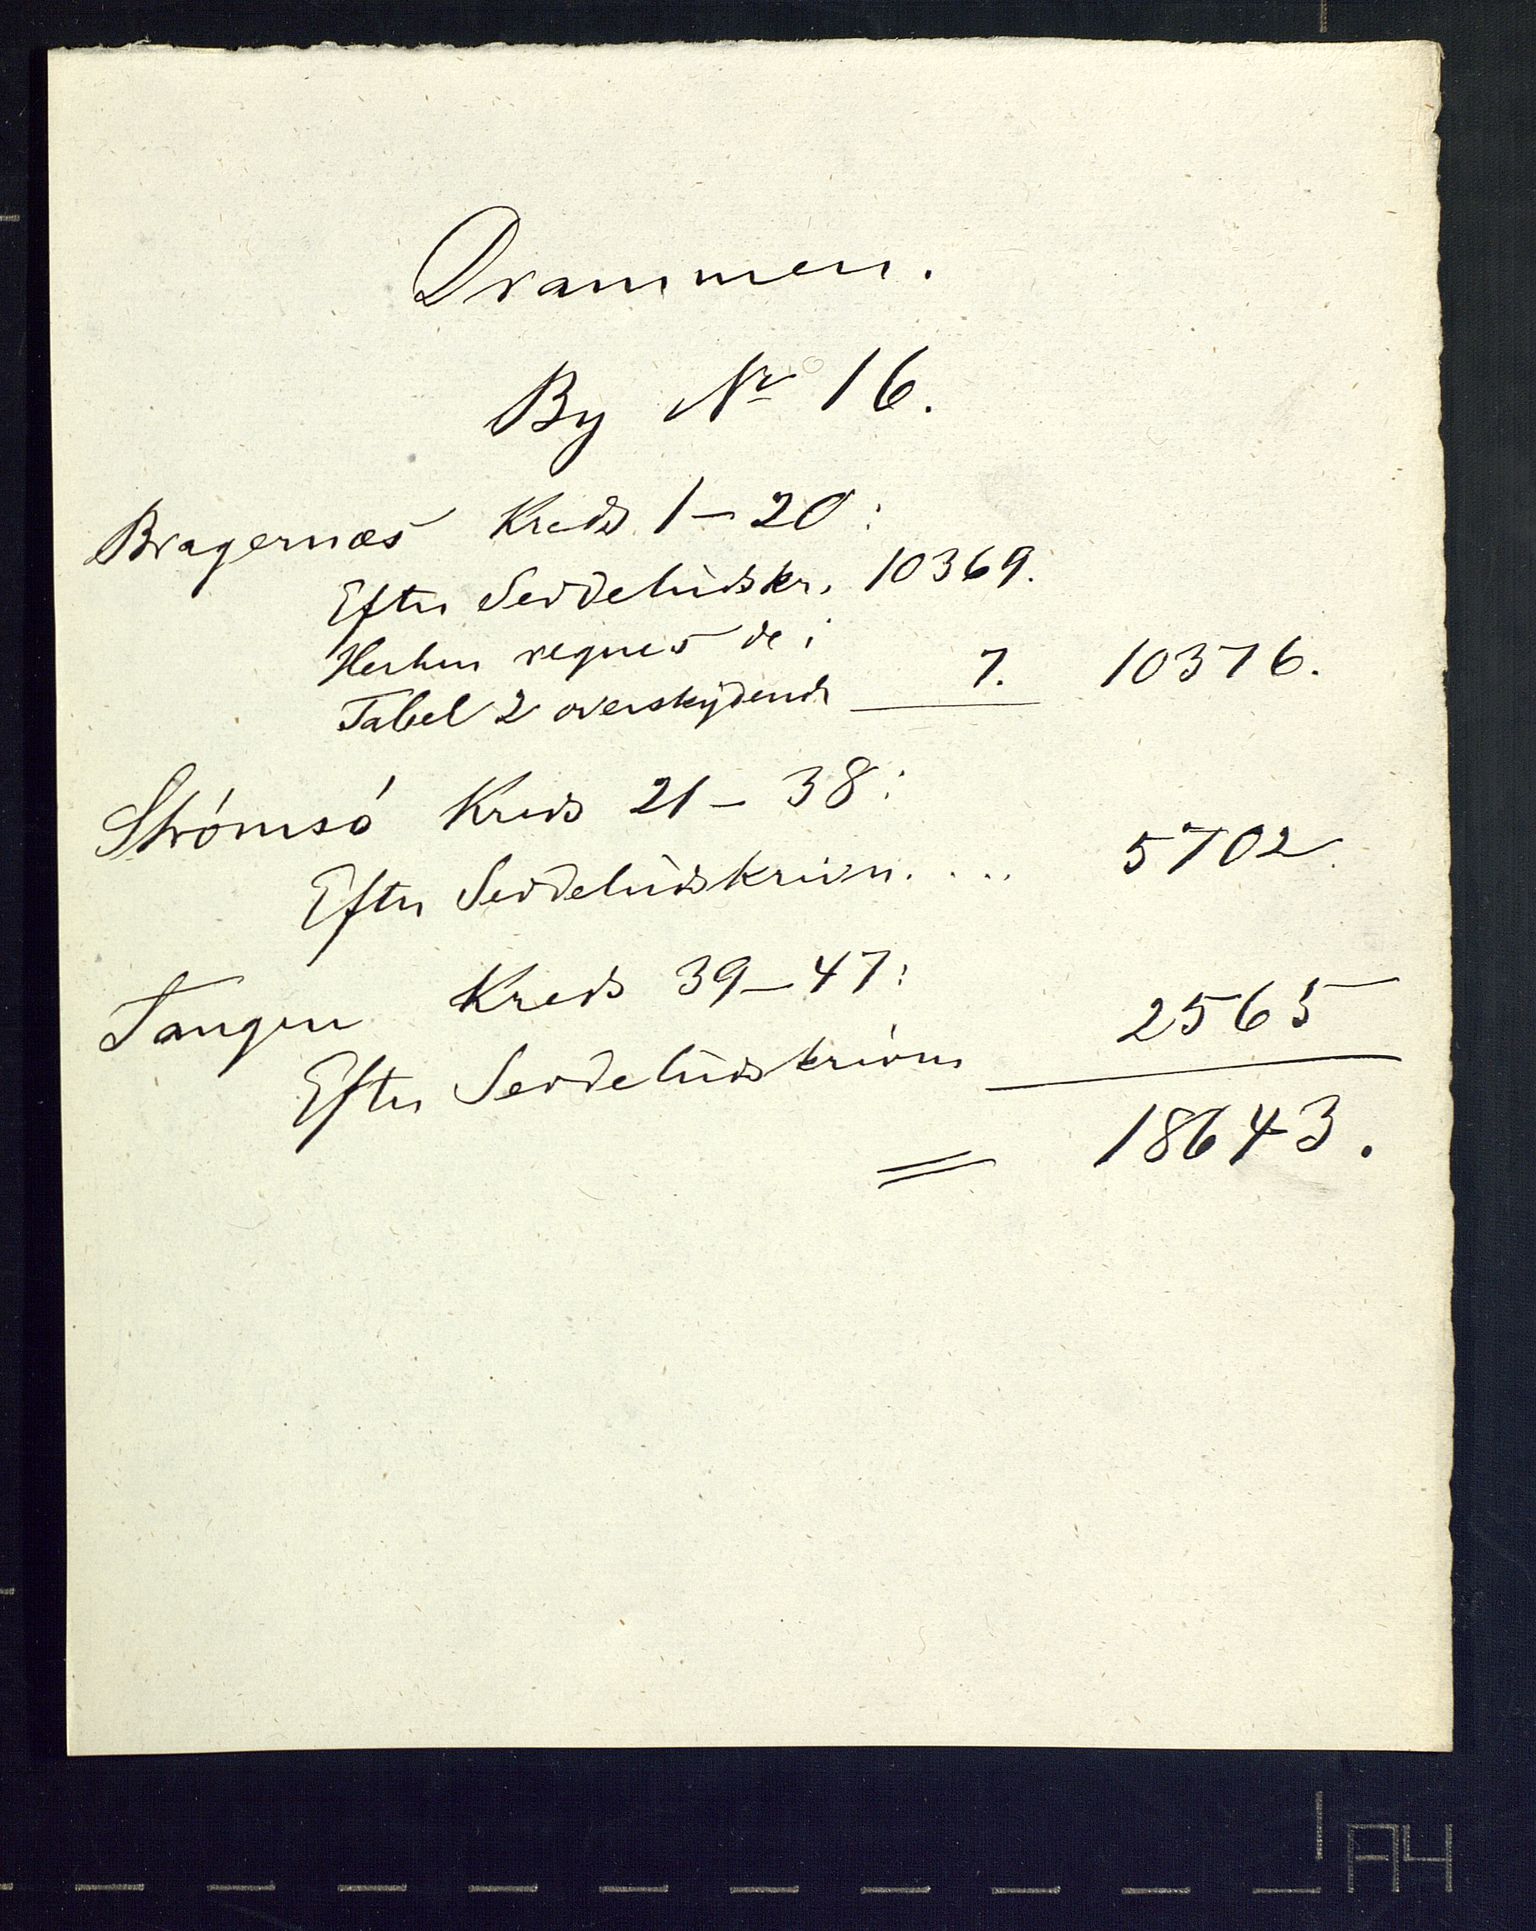 Drammen.
By Nr 16.
Bragernæs Kreds 1 – 20:
Efter Seddeludskr. 10369.
Herhen regnes de i
Tabel 2 overskydende 7. 10376.
Strómsó Kreds 21 – 38:
Efter Seddeludskrivn. . . . 5702.
Tangen Kreds 39 – 47:
Efter Seddeludskrivn 2565
= 18643.
A4